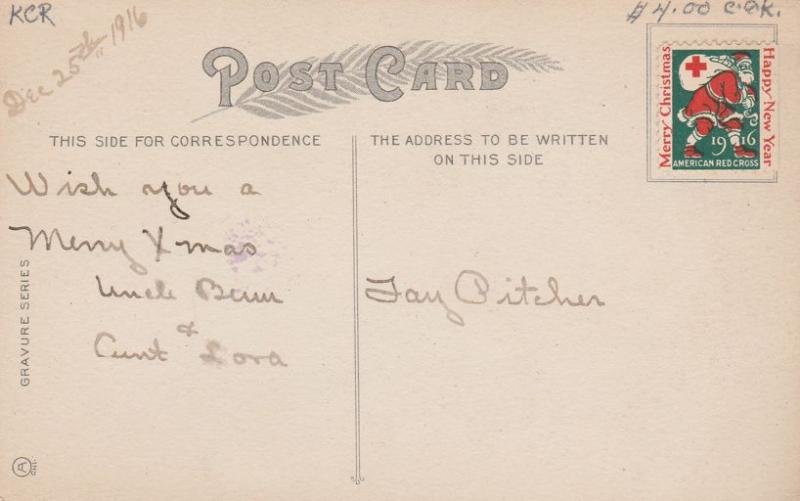 KCR
$4.00 C.O.K.
Dec 25th 1916
POST CARD
THIS SIDE FOR CORRESPONDENCE
THE ADDRESS TO BE WRITTEN
ON THIS SIDE
Merry Christmas
Happy New Year
1916
AMERICAN RED CROSS
Wish you a
Merry Xmas
Uncle
&
Aunt Lora
Fay Pitcher
GRAVURE SERIES
A